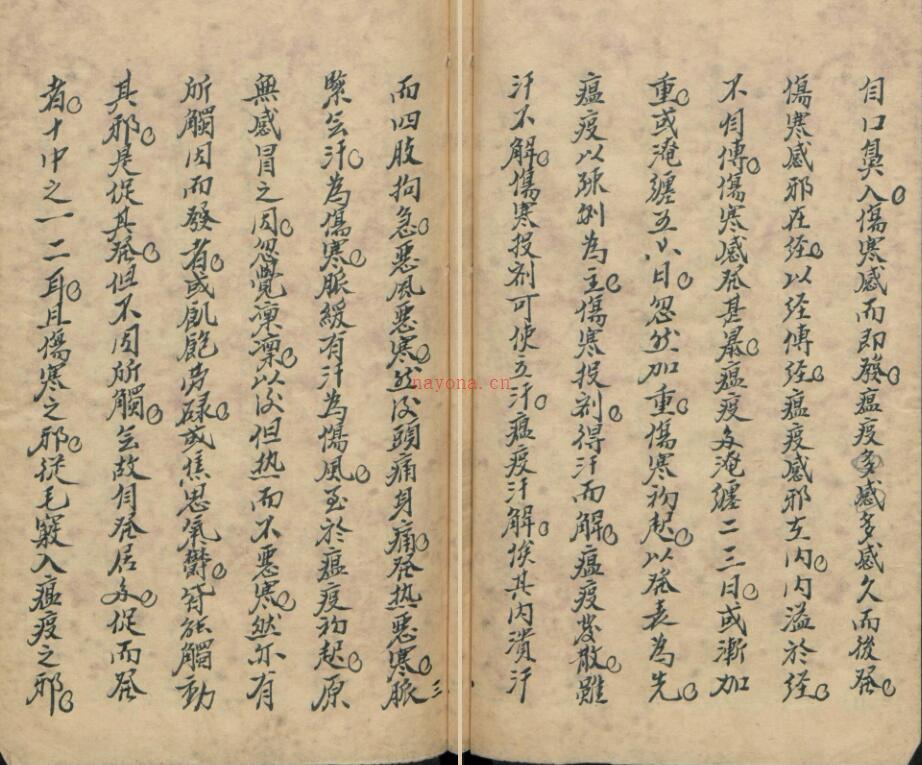 自口鼻入傷寒感而即發瘟疫多感多感久而後發
傷寒感邪在経以経傳経瘟疫感邪在内内溢於経
不自傳傷寒感發甚暴瘟疫多淹纏二三日或漸加
重或淹纏五六日忽然加重傷寒初起以發表為先
瘟疫以疎利為主傷寒投剂得汗而解瘟疫發散雖
汗不解傷寒投剂可使立汗瘟疫汗解俟其内潰汗
三
而四肢拘急惡風惡寒然後頭痛身痛發热惡寒脈
緊无汗為傷寒脈緩有汗為傷風至於瘟疫初起原
無感冒之因忽覺凜凜以後但热而不惡寒然亦有
所觸因而發者或飢飽劳碌或焦思氣鬱皆能觸動
其邪是促其發但不因所觸无故自發居多促而發
者十中之一二耳且傷寒之邪從毛竅入瘟疫之邪
nayona.cn